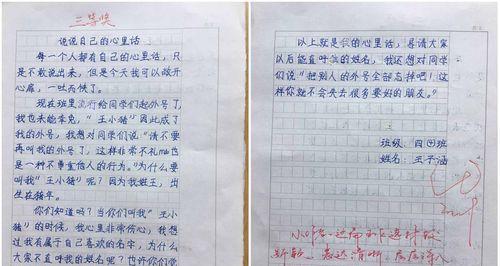 三等奖
说说自己的心里话
每一个人都有自己的心里话，只
是不敢说出来，但是今天我可以敞开
心扉，一吐为快了。
现在班里流行给同学们起外号了，
我也未能幸免，"王小猪"因此成了
我的外号，我想对同学们说："请不要
再叫我的外号了，这样非常不礼貌也
是一种不尊重他人的行为。"为什么要
叫我"王小猪"呢？因为我姓王，出
生在猪年。
你们知道吗？当你们叫我"王小
猪"的时候，我心里非常伤心，我想
过我有属于自己喜欢的名字，为什么
大家不直呼我的姓名呢？也许你们觉
以上就是我的心里话，恳请大家
以后能直呼我的姓名，我还想对同学
们说："把别人的外号全部忘掉吧！这
样你就不会失去很多要好的朋友。"
班级：四④班
姓名：王子涵
小作者
选材
新颖，表达清晰